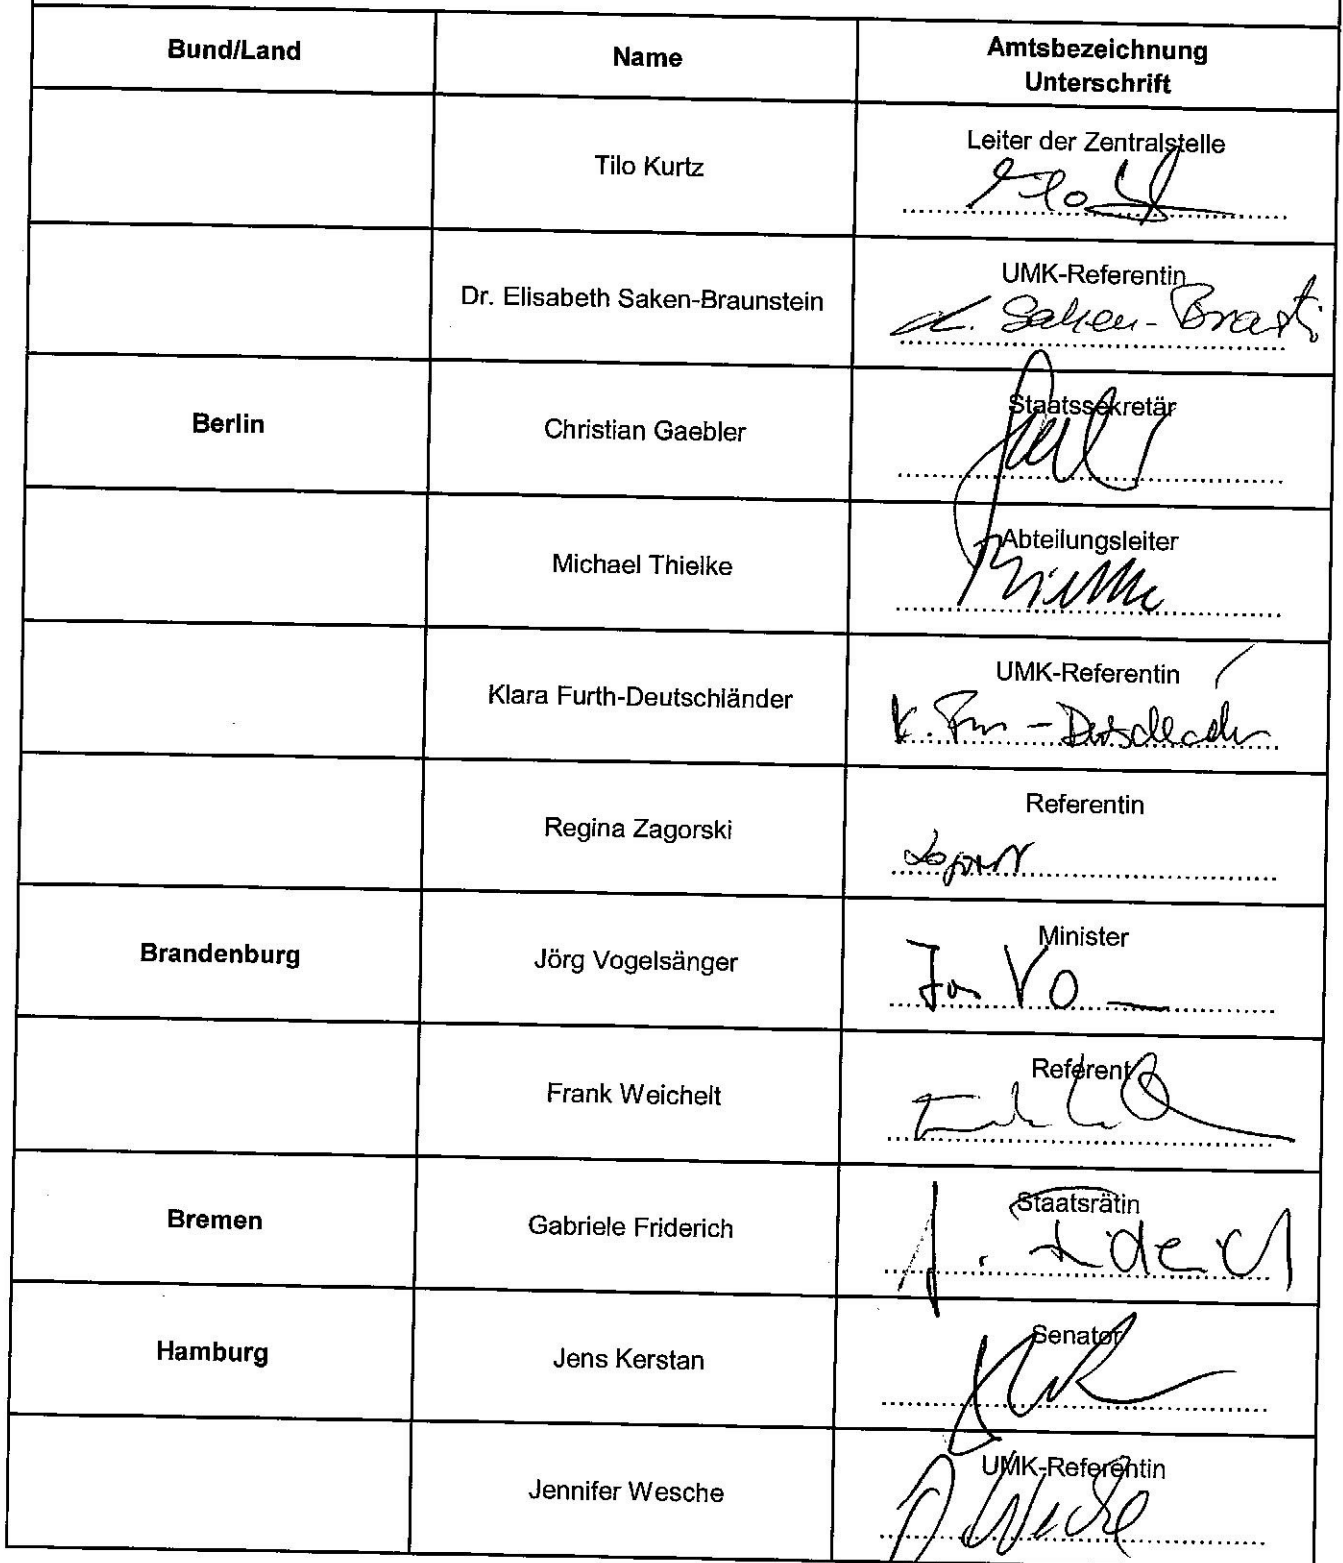 Bund/Land
Name
Amtsbezeichnung
Unterschrift
Tilo Kurtz
Leiter der Zentralstelle
Dr. Elisabeth Saken-Braunstein
UMK-Referentin
Berlin
Christian Gaebler
Staatssekretär
Michael Thielke
Abteilungsleiter
Klara Furth-Deutschländer
UMK-Referentin
Regina Zagorski
Referentin
Brandenburg
Jörg Vogelsänger
Minister
Frank Weichelt
Referent
Bremen
Gabriele Friderich
Staatsrätin
Hamburg
Jens Kerstan
Senator
Jennifer Wesche
UMK-Referentin